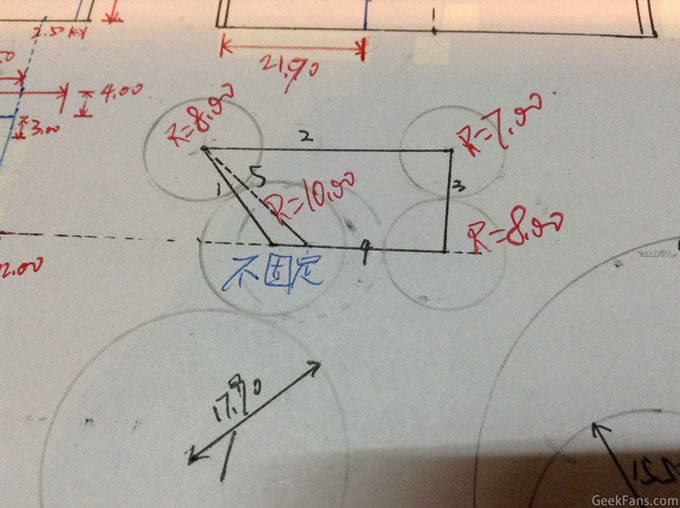 2.50
21.90
4.00
3.00
R=8.00
2
R=7.00
1
5
3
R=10.00
R=8.00
不固定
4
2.00
17.90
GeekFans.com